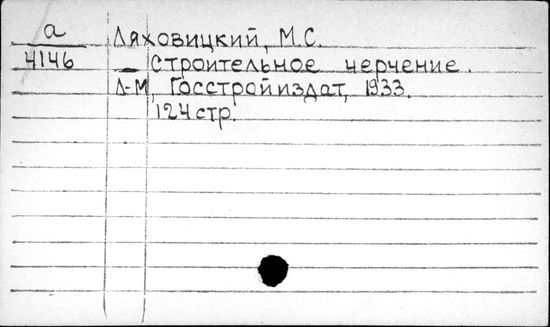 а Ляховицкий, М.С.
4146 — Строительное черчение.
Л-М, Госстройиздат, 1933.
124 стр.